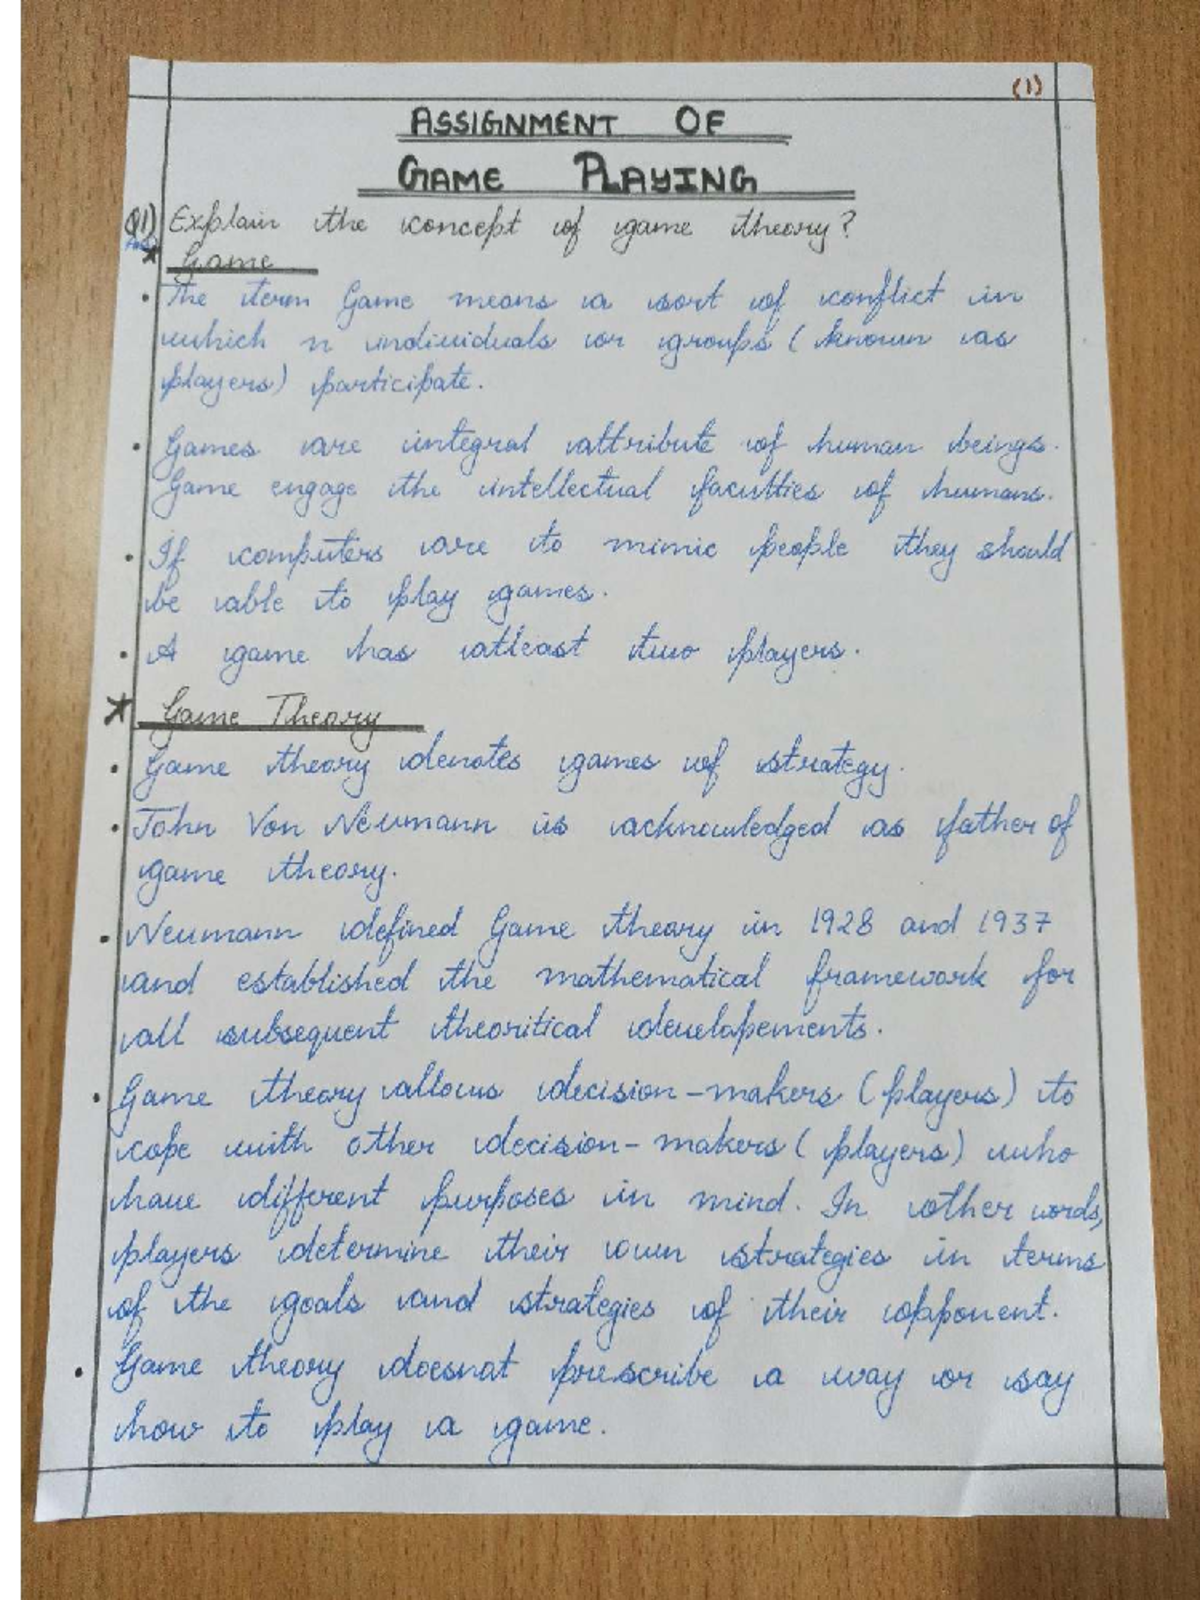 (1)
ASSIGNMENT OF
GAME PLAYING
Q1) Explain the concept of game theory?
Ans
* Game
• The term Game means a sort of conflict in
which n individuals or groups (known as
players) participate.
• Games are integral attribute of human beings.
Game engage the intellectual faculties of humans.
• If computers are to mimic people they should
be able to play games.
• A game has atleast two players.
* Game Theory
• Game theory denotes games of strategy.
• John Von Neumann is acknowledged as father of
game theory.
• Neumann defined Game theory in 1928 and 1937
and established the mathematical framework for
all subsequent theoritical developements.
• Game theory allows decision-makers (players) to
cope with other decision-makers (players) who
have different purposes in mind. In other words,
players determine their own strategies in terms
of the goals and strategies of their opponent.
• Game theory doesnat prescribe a way or say
how to play a game.